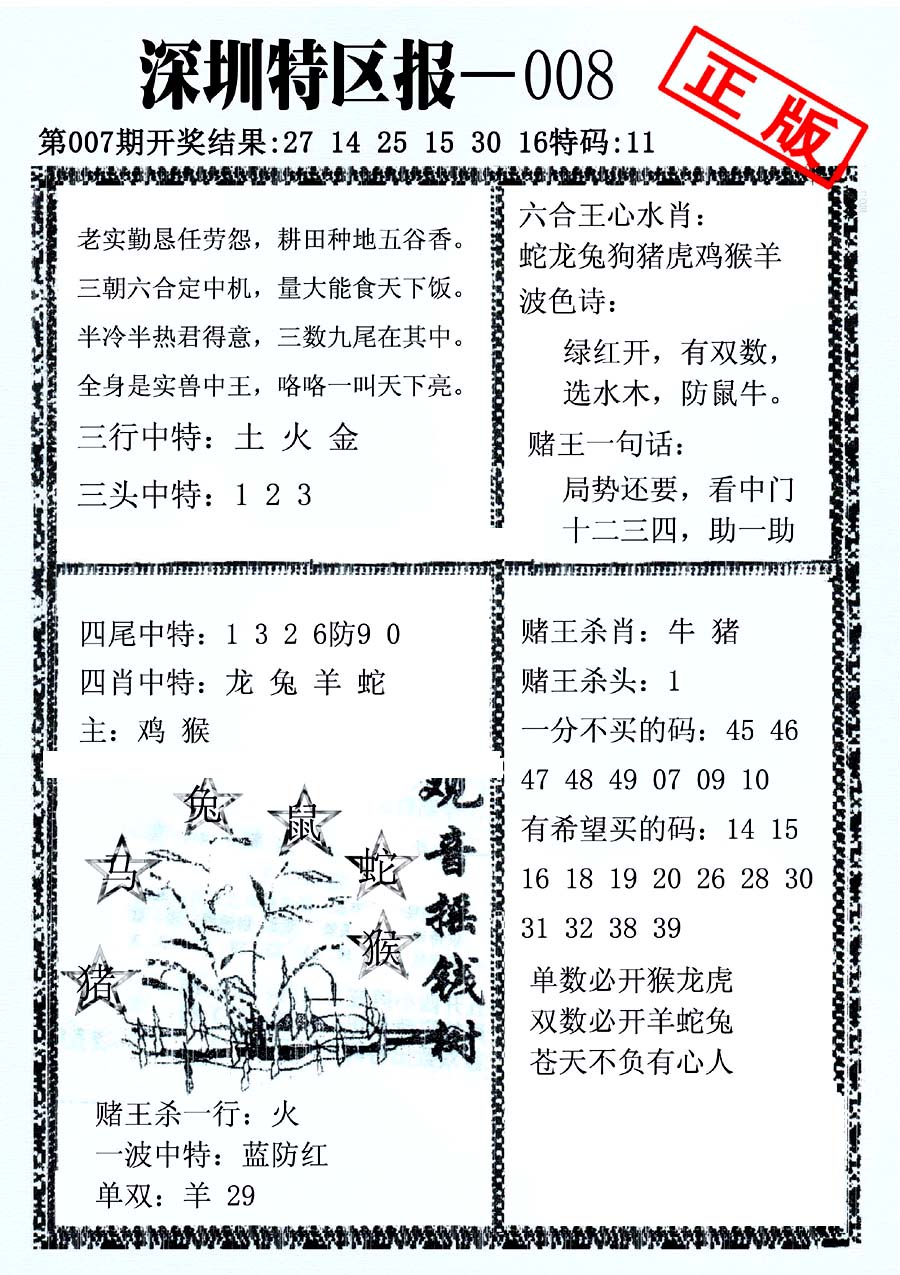 深圳特区报—008
正版
第007期开奖结果:27 14 25 15 30 16特码:11
老实勤恳任劳怨，耕田种地五谷香。
三朝六合定中机，量大能食天下饭。
半冷半热君得意，三数九尾在其中。
全身是实兽中王，咯咯一叫天下亮。
三行中特：土 火 金
三头中特：1 2 3
六合王心水肖：
蛇龙兔狗猪虎鸡猴羊
波色诗：
绿红开，有双数，
选水木，防鼠牛。
赌王一句话：
局势还要，看中门
十二三四，助一助
四尾中特：1 3 2 6防9 0
四肖中特：龙 兔 羊 蛇
主：鸡 猴
兔
鼠
马
蛇
猴
猪
观音摇钱树
赌王杀一行：火
一波中特：蓝防红
单双：羊 29
赌王杀肖：牛 猪
赌王杀头：1
一分不买的码：45 46
47 48 49 07 09 10
有希望买的码：14 15
16 18 19 20 26 28 30
31 32 38 39
单数必开猴龙虎
双数必开羊蛇兔
苍天不负有心人